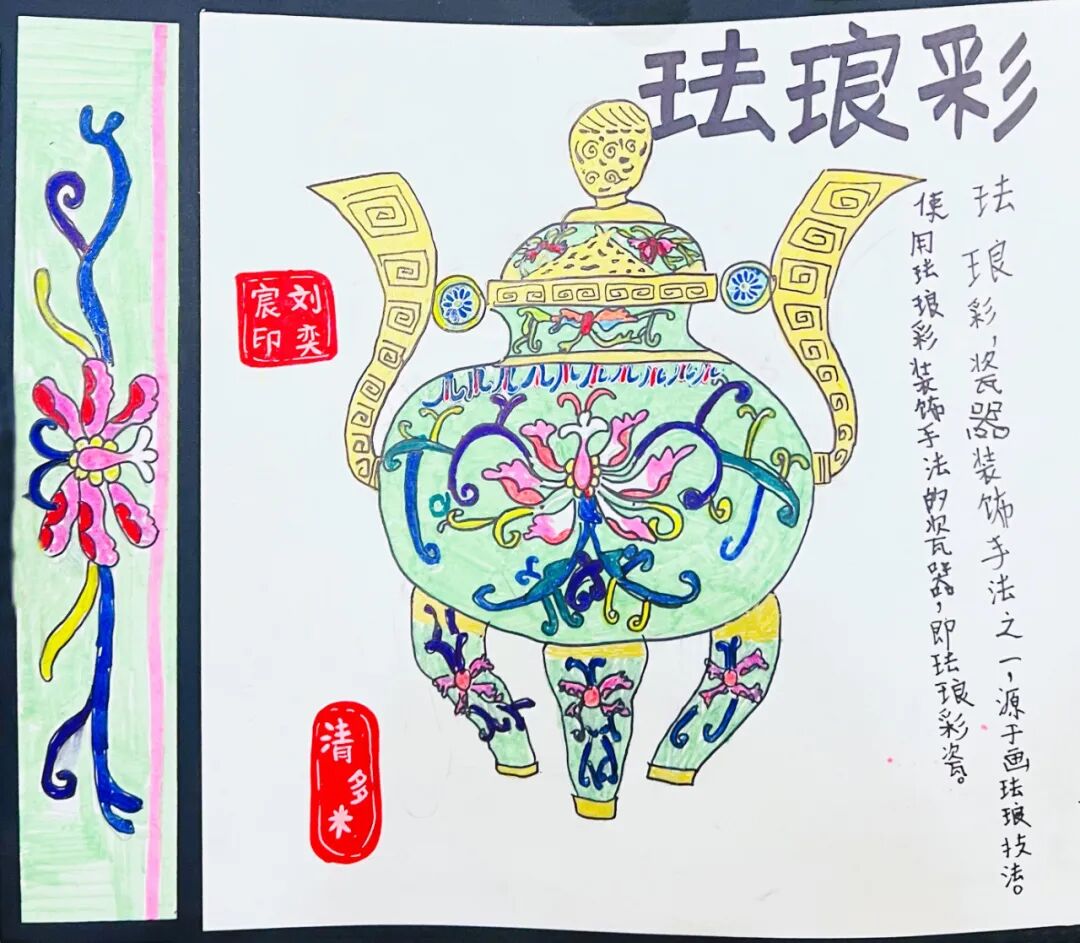 珐琅彩
珐琅彩，瓷器装饰手法之一，源于画珐琅技法。
使用珐琅彩装饰手法的瓷器，即珐琅彩瓷。
刘奕
宸印
清多米